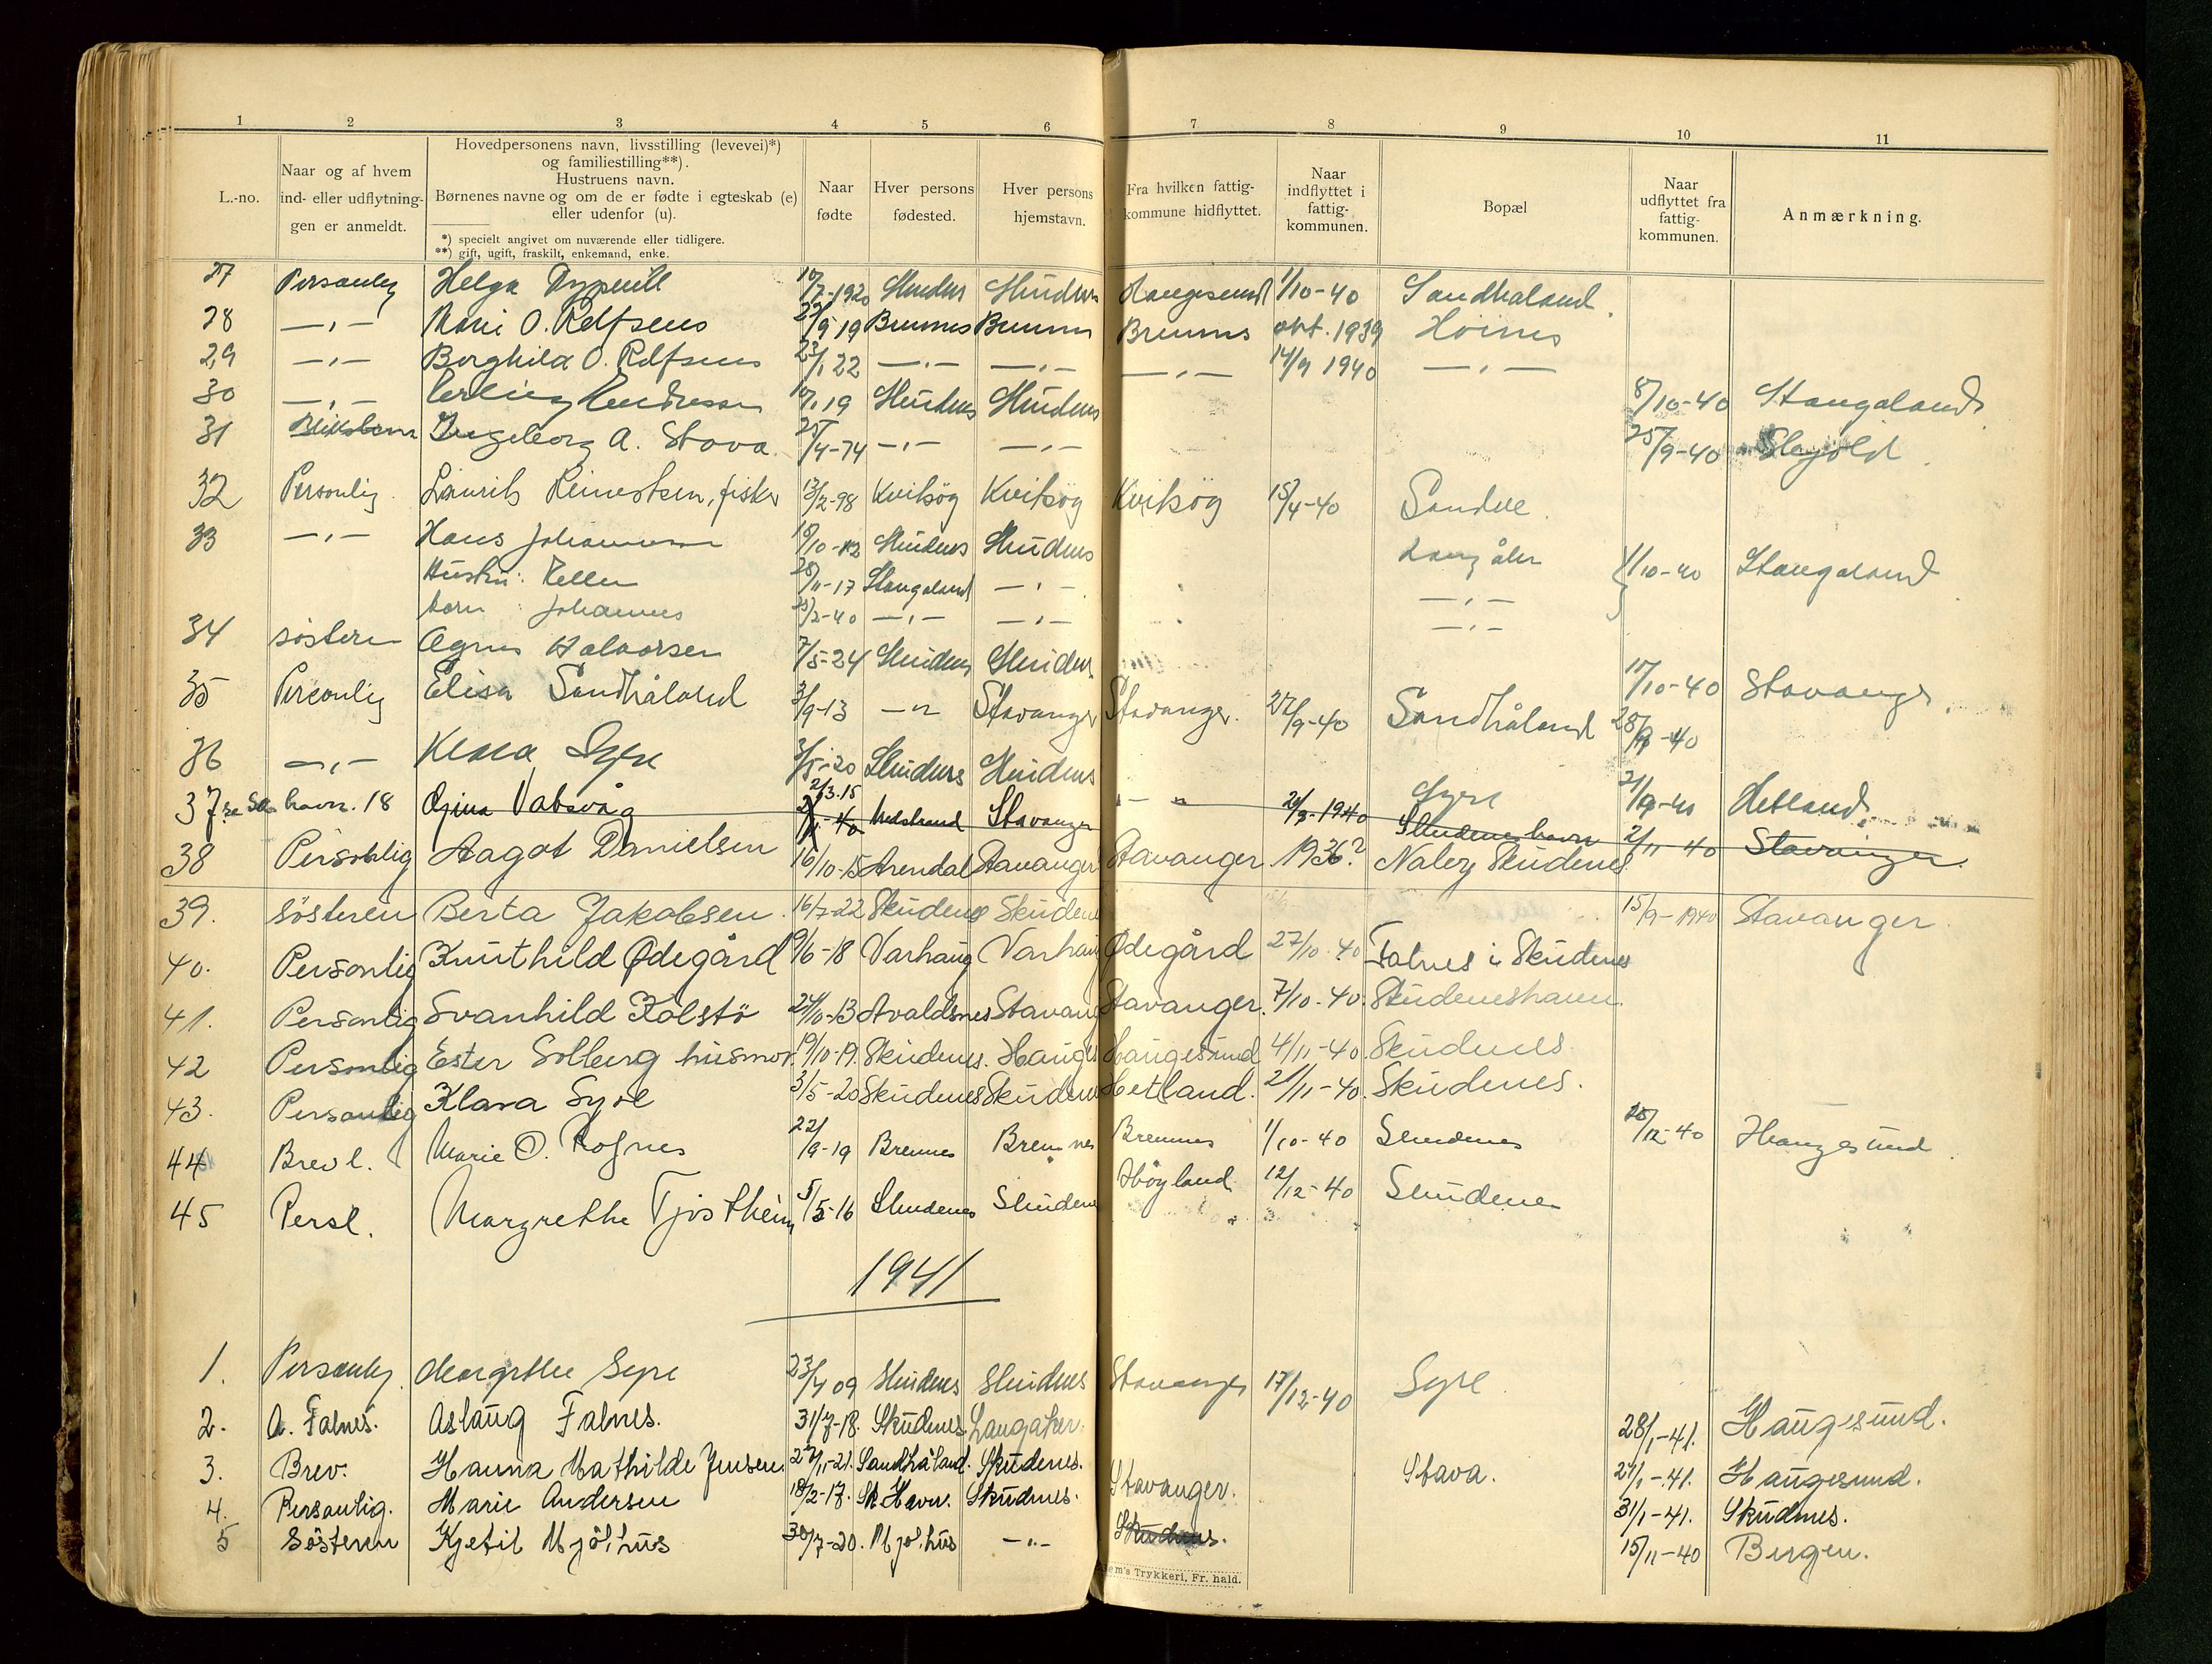 1 2 3 4 5 6 7 8 9 10 11
L.-no.
Naar og af hvem
ind- eller udflytnin-
gen er anmeldt.
Hovedpersonens navn, livsstilling (levevei)*)
og familiestilling**).
Hustruens navn.
Børnenes navne og om de er fødte i egteskab (e)
eller udenfor (u).
*) specielt angivet om nuværende eller tidligere.
**) gift, ugift, fraskilt, enkemand, enke.
Naar
fødte
Hver persons
fødested.
Hver persons
hjemstavn.
Fra hvilken fattig-
kommune hidflyttet.
Naar
indflyttet i
fattig-
kommunen.
Bopæl
Naar
udflyttet fra
fattig-
kommunen.
Anmærkning.
27 Personlig Helga 10/7-1920 Skudens Skudens Haugesund 1/10-40 Sandhaland.
28 —,— Marie O. Rolfsens 22/9 19 Bremnes Bremnes Bremnes okt. 1939 Høines
29 —,— Borghild O. Rolfsens 23/1 22 —,— —,— —,— 14/9 1940 —,—
30 —,— Erling Endresen 19 Skudens Skudens 8/10-40 Stangaland
31 Ingeborg A. Stava. 25/4-74 —,— —,— 25/9-40 Skjold
32 Personlig. Laurits Reinertsen, fisker 13/2-98 Kvitsøy Kvitsøy Kvitsøy 15/4-40 Sandve.
33 —,— Hans Johannessen 18/10-12 Skudens Skudens Langåker 1/10-40 Stangaland
Hustru: 28/11-17 Stangaland —,— —,—
barn: Johannes 2-40 —,— —,— —,—
34 søsteren Agnes Halvorsen 7/5-24 Skudens Skudens 17/10-40 Stavanger
35 Personlig Elisa Sandhåland 3/9-13 —"— Stavanger Stavanger. 27/9-40 Sandhåland 28/-40
36 —,— Klara Syre 3/5-20 Skudens Skudens Syre 21/9-40 Hetland
37 havn. 18 Gina Vatsvåg 2/3.15 Nedstrand Stavanger —"— 1940 Skudeneshavn 2/11 40 Stavanger.
38 Personlig Aagot Danielsen 16/10-15 Arendal Stavanger Stavanger. 1936? Nalez Skudenes
39. søsteren Berta Jakobsen. 16/7-22 Skudenes Skudenes 15/9-1940 Stavanger.
40. Personlig Knuthild Ødegård 9/6-18 Varhaug Varhaug Ødegård 27/10.40 Falnes i Skudenes
41. Personlig Svanhild Kolstø 24/10-13 Avaldsnes Stavang Stavanger. 7/10-40. Skudeneshavn.
42 Personlig Ester Solberg husmor. 19/10-19. Skudenes. Hauges Haugesund 4/11-40. Skudenes.
43. Personlig Klara Syre 3/5-20 Skudenes Skudenes Hetland. 21/11-40. Skudenes.
44 Brevl. Marie O. Rofnes 22/9-19 Bremnes Bremnes Bremnes 1/10-40 Skudenes 28/12-40 Haugesund.
45 Persl. Margrethe Tjostheim 5/5-16 Skudenes Skudenes Høyland 12/12-40 Skudenes
1941
1. Personlig. Margrethe Syre 23/4 09 Skudenes Skudenes Stavanger 17/12-40 Syre
2. A. Falnes. Aslaug Falnes. 31/7-18. Skudenes. Langaker. 28/1-41. Haugesund.
3. Brev. Hanna Mathilde Jensen. 27/11-21. Sandhåland. Skudenes. Stava. 27/1-41. Haugesund.
4. Personlig. Marie Andersen 18/2-17. Sk.Havn. Skudenes. Stavanger. 31/1-41. Skudenes.
5 Søsteren Kjetil Mjølhus 30/7-20. Mjølhus —"— Skudenes. 15/11-40 Bergen.
Trykkeri, Fr. hald.